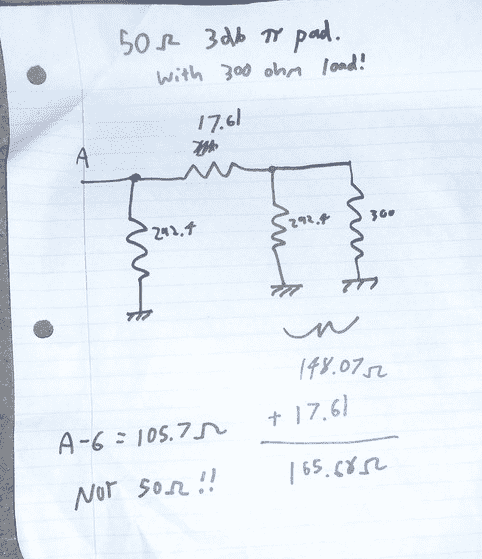 50Ω 3db π pad.
with 300 ohm load!
17.61
A
292.4
292.4
300
148.07Ω
+ 17.61
165.68Ω
A-G = 105.7Ω
Not 50Ω !!